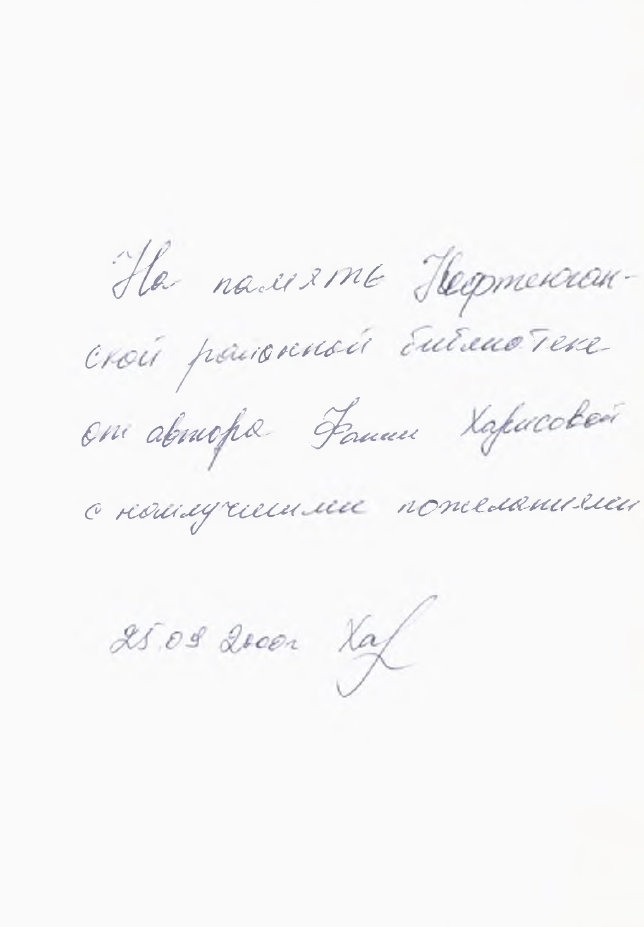 На память Нефтеюган-
ской районной библиотеке
от автора Фании Харисовой
с наилучшими пожеланиями
25.09 2000г Ха